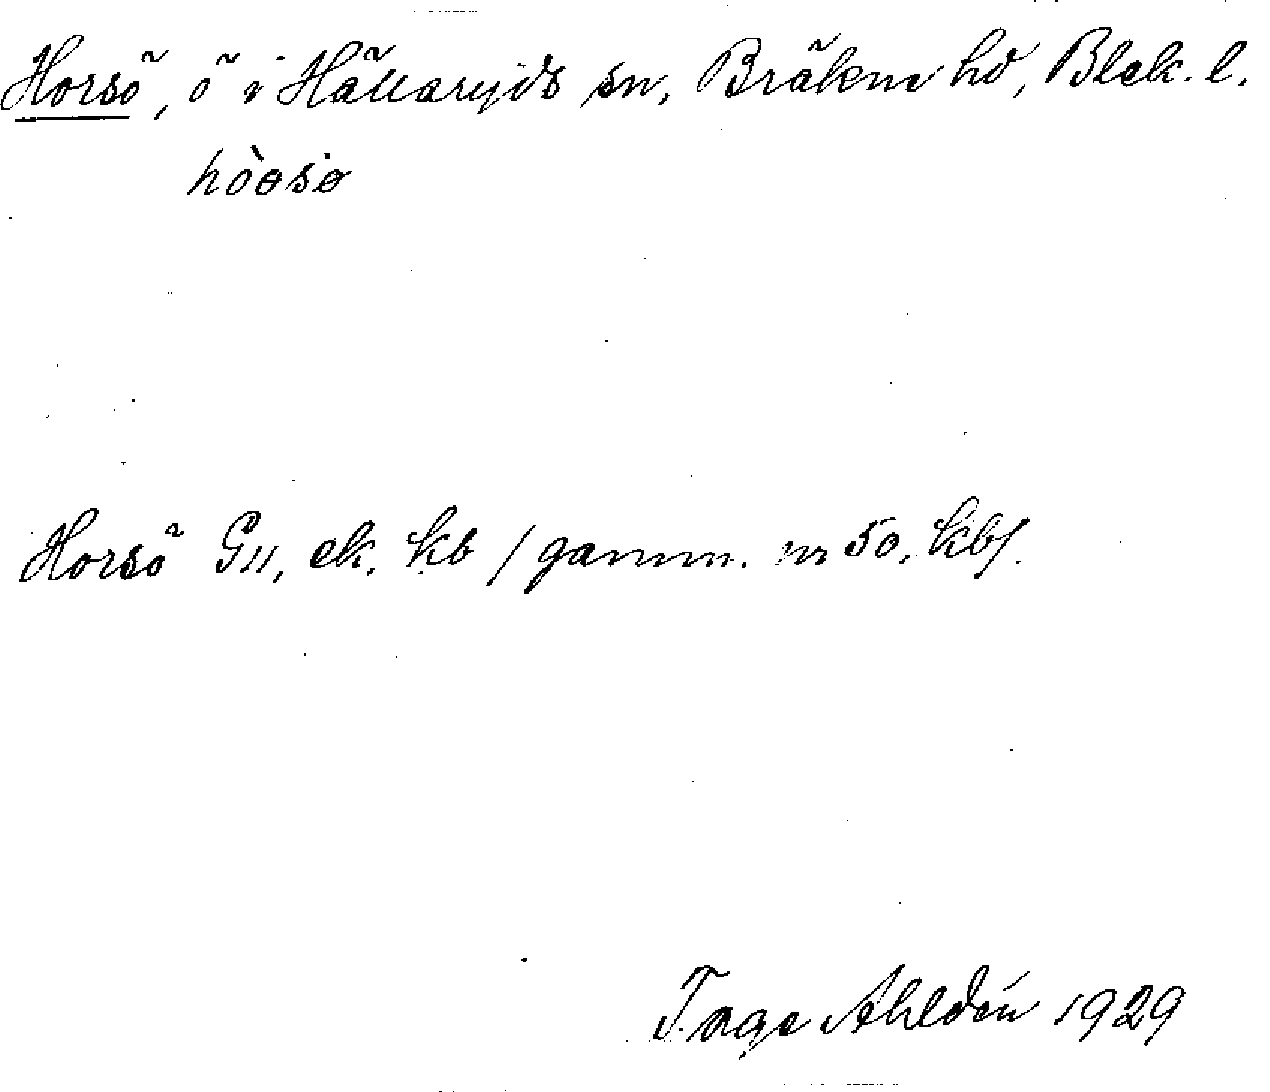 Horsö, ö i Hällaryds sn, Bräkne hd, Blek. l.
hòosø
Horsö G11, ek. kb /gamm. m 50. kb/.
Tage Ahldén 1929